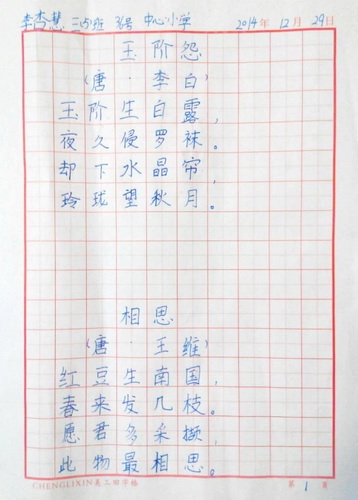 李杏慧 三(5)班 36号 中心小学 2014年12月29日
玉阶怨
(唐·李白)
玉阶生白露,
夜久侵罗袜。
却下水晶帘,
玲珑望秋月。
相思
(唐·王维)
红豆生南国,
春来发几枝。
愿君多采撷,
此物最相思。
CHENGLIXIN晨三田字格 第1页